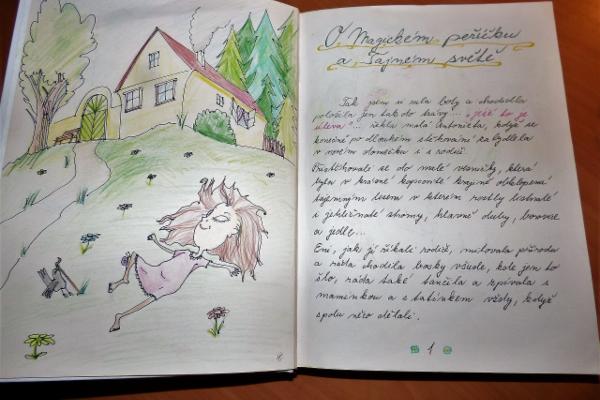 O Magickém peříčku
a Tajném světě
Tak jsem si sula boty a chodidla
položila jen tak do trávy... „Jéžé to je
úleva"... řekla malá Antonieta, když se
konečně po dlouhém stěhování zabydlela
v novém domečku i s rodiči.
Přistěhovali se do malé vesničky, která
byla v krásné kopcovité krajině obklopená
tajemným lesem v kterém rostly listnaté
i jehličnaté stromy, hlavně duby, borovice
a jedle...
Eni, jak jí říkali rodiče, milovala přírodu
a ráda chodila bosky všude, kde jen to
šlo, ráda také tančila a zpívala s
maminkou a s tatínkem vždy, když
spolu něco dělali.
1